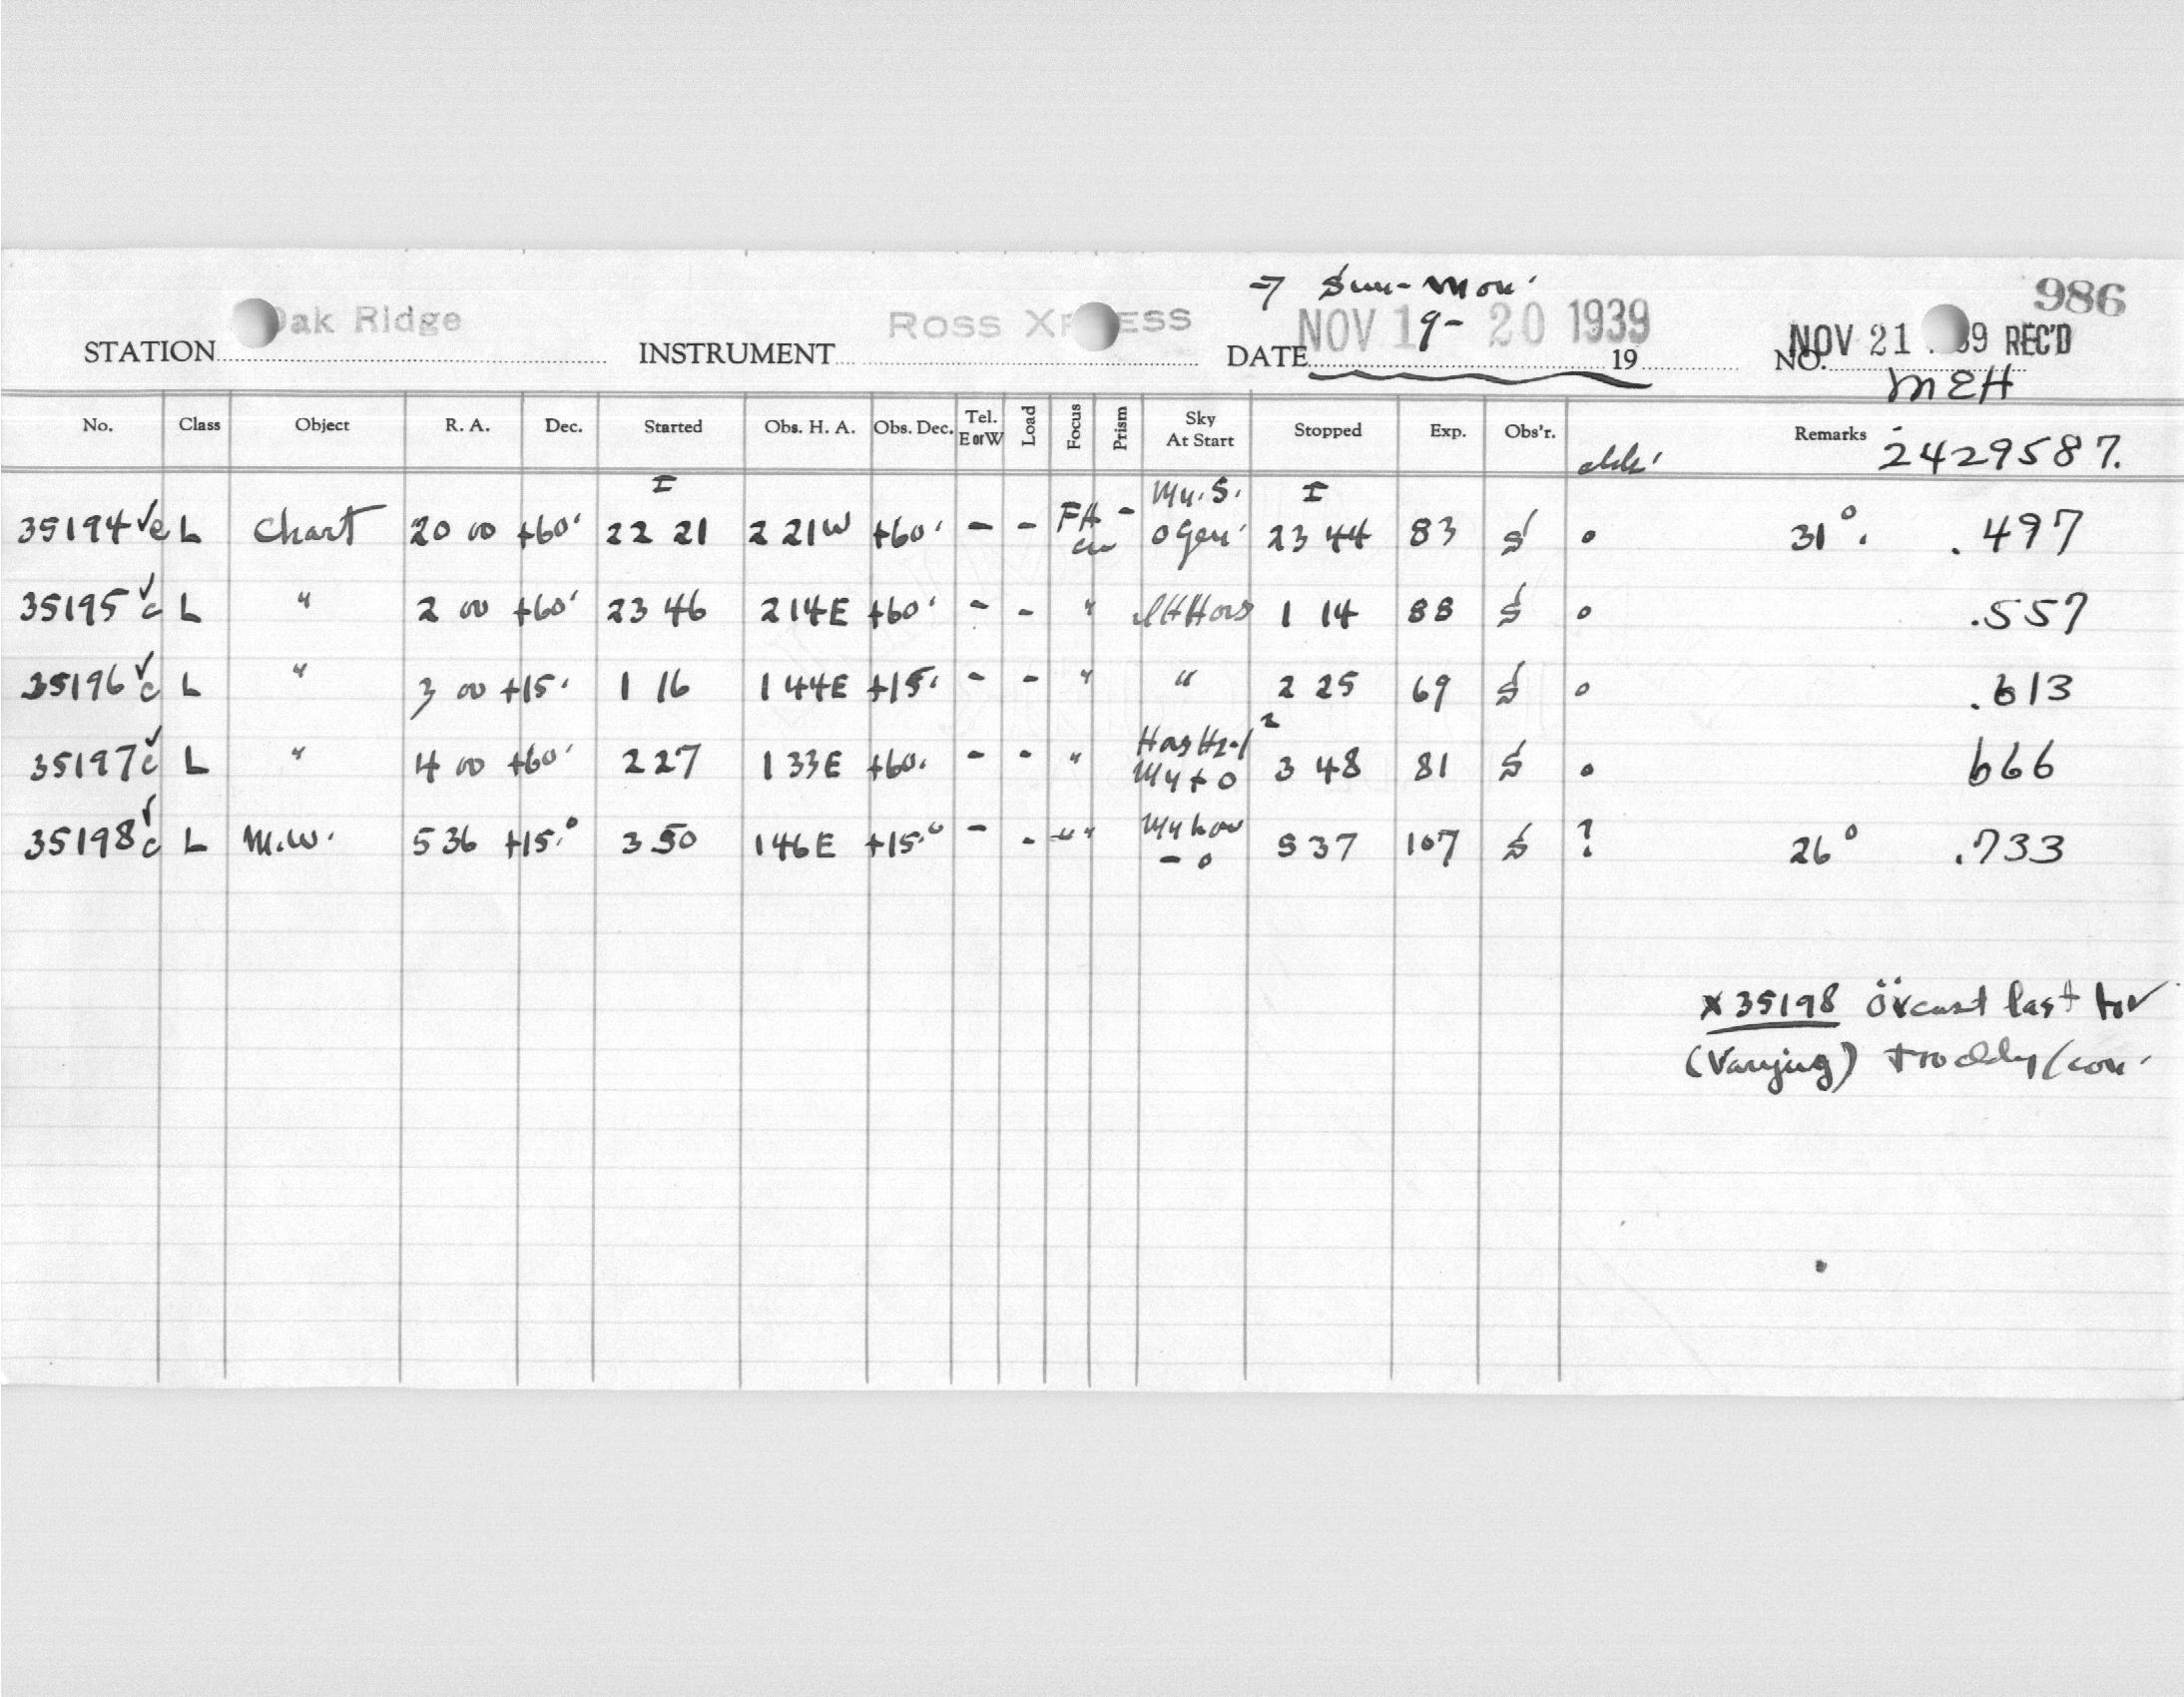 → Sun-Mon.
986
STATION Oak Ridge INSTRUMENT ROSS XPRESS DATE NOV 19-20 1939 19 NO. NOV 21 39 REC'D
MEH
No. Class Object R. A. Dec. Started Obs. H. A. Obs. Dec. Tel. E or W Load Focus Prism Sky At Start Stopped Exp. Obs'r. Remarks 2429587.
35194 ✓c L Chart 20 00 +60° I 22 21 2 21W +60° - - FA - I 23 44 83 S o 31°. .497
35195 ✓c L " 2 00 +60° 23 46 2 14E +60° - - " 1 14 88 S o .557
35196 ✓c L " 3 00 +15° 1 16 1 44E +15° - - " " 2 25 69 S o .613
35197 ✓c L " 4 00 +60° 2 27 1 33E +60° - - " 3 48 81 S o 666
35198 ✓c L M.W. 5 36 +15.° 3 50 1 46E +15.° - - " " 5 37 107 S ? 26° .733
X 35198 last
(Varying)